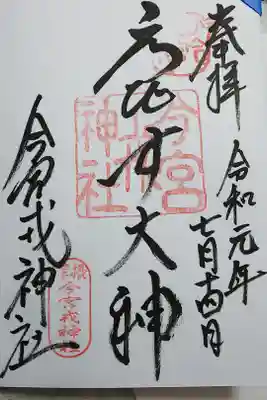 奉拝
令和元年
七月十四日
大神
今宮
神社
今宮戎神社
今宮戎神社